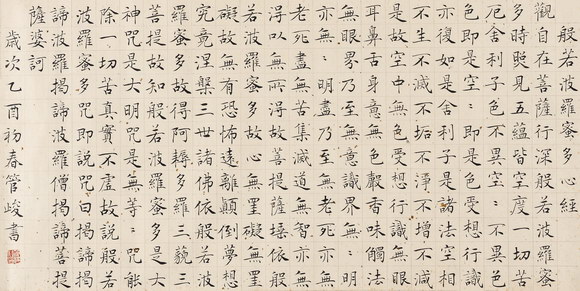 般若波羅蜜多心經
觀自在菩薩行深般若波羅蜜
多時照見五蘊皆空度一切苦
厄舍利子色不異空々不異色
色即是空々即是色受想行識
亦復如是舍利子是諸法空相
不生不滅不垢不淨不增不減
是故空中無色受想行識無眼
耳鼻舌身意無色聲香味觸法
無眼界乃至無意識界無々明
亦無々明盡乃至無老死亦無
老死盡無苦集滅道無智亦無
得以無所得故菩提薩埵依般
若波羅蜜多故心無罣礙無罣
礙故無有恐怖遠離顛倒夢想
究竟涅槃三世諸佛依般若波
羅蜜多故得阿耨多羅三藐三
菩提故知般若波羅蜜多是大
神咒是大明咒是無等々咒能
除一切苦真實不虛故說般若
波羅蜜多咒即說咒曰揭諦揭
諦波羅揭諦波羅僧揭諦菩提
薩婆訶
歲次乙酉初春管峻書